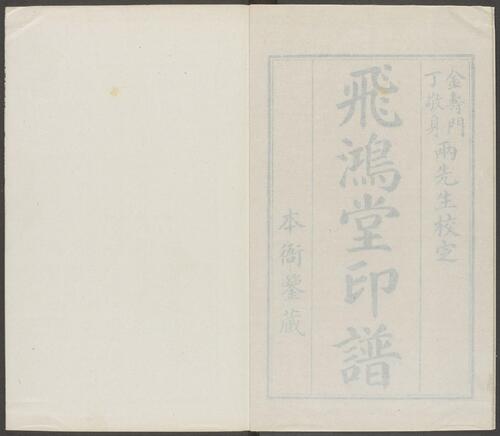 金壽門
丁敬身兩先生校定
飛鴻堂印譜
本衙鑒藏